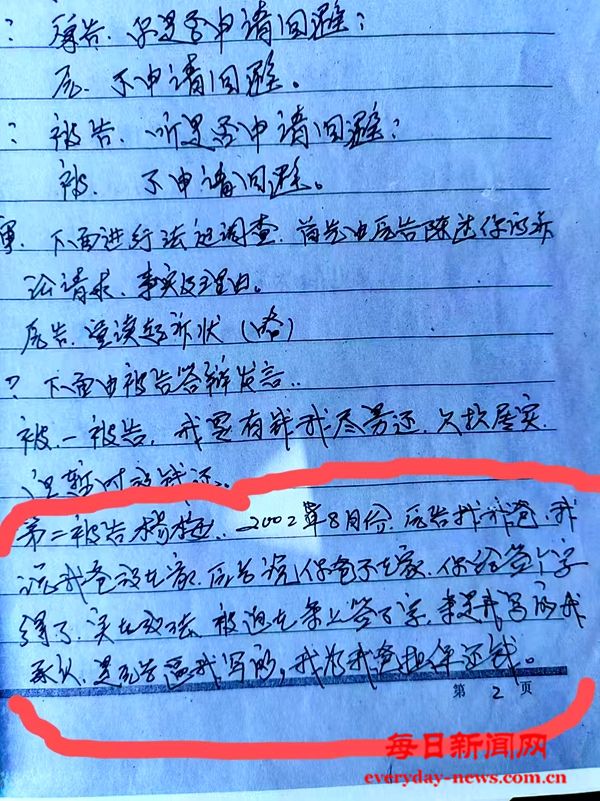 : 原告、你是否申请回避:
原、不申请回避。
: 被告、你是否申请回避:
被、不申请回避。
下面进行法廷调查、首先由原告陈述你的诉
讼请求、事实及理由。
原告、宣读起诉状(略)
? 下面由被告答辩发言..
被、一被告、我要有钱我尽量还、欠款属实、
但暂时没钱还..
第二被告杨梅.. 2002年8月份、原告找我爸、我
说我爸没在家、原告说你爸不在家、你给签个字
得了、实在没法、被迫在条上签了字、条是我写的我
承认、是原告逼我写的、我为我爸担保还钱。
第 2 页
每日新闻网
everyday-news.com.cn